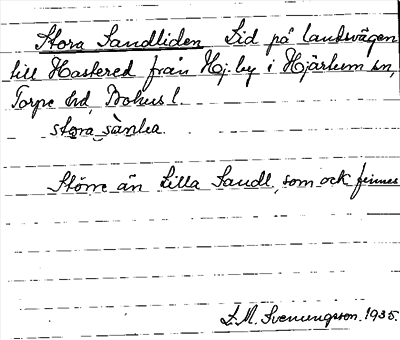 Stora Sandliden Lid på landsvägen
till Hastered från Hj. by i Hjärtum sn,
Torpe hd, Bohus l.
stora sànlea.
Större än Lilla Sandl., som ock finnes
S. M. Svenungsson. 1935.